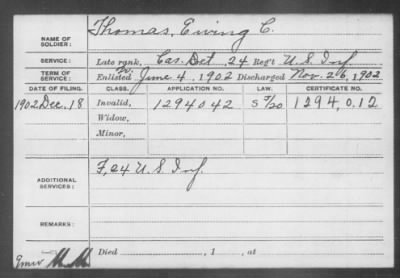 NAME OF SOLDIER: Thomas, Ewing C.
SERVICE: Late rank, Cas. Det. 24 Reg't U.S. Inf
TERM OF SERVICE: Enlisted June 4, 1902 Discharged Nov. 26, 1902
DATE OF FILING. CLASS. APPLICATION NO. LAW. CERTIFICATE NO.
1902 Dec. 18 Invalid, 1294042 1294,012
Widow,
Minor,
ADDITIONAL SERVICES: F, 24 U.S. Inf.
REMARKS:
Died , 1 , at